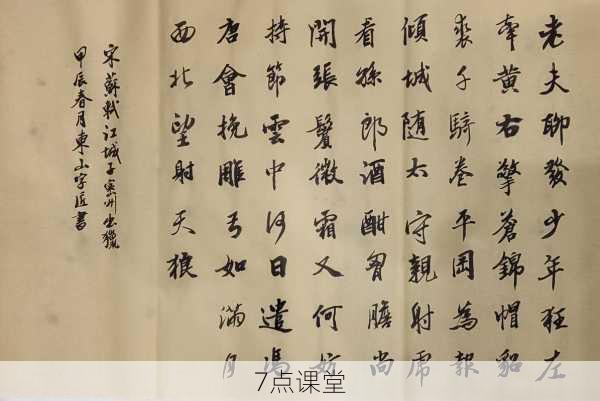 老夫聊發少年狂左
牽黃右擎蒼錦帽貂
裘千騎卷平岡為報
傾城随太守親射虎
看孫郎酒酣胷膽尚
開張鬢微霜又何妨
持節雲中何日遣馮
唐會挽雕弓如滿月
西北望射天狼
宋蘇軾江城子密州出獵
甲辰春月東山字匠書
7点课堂